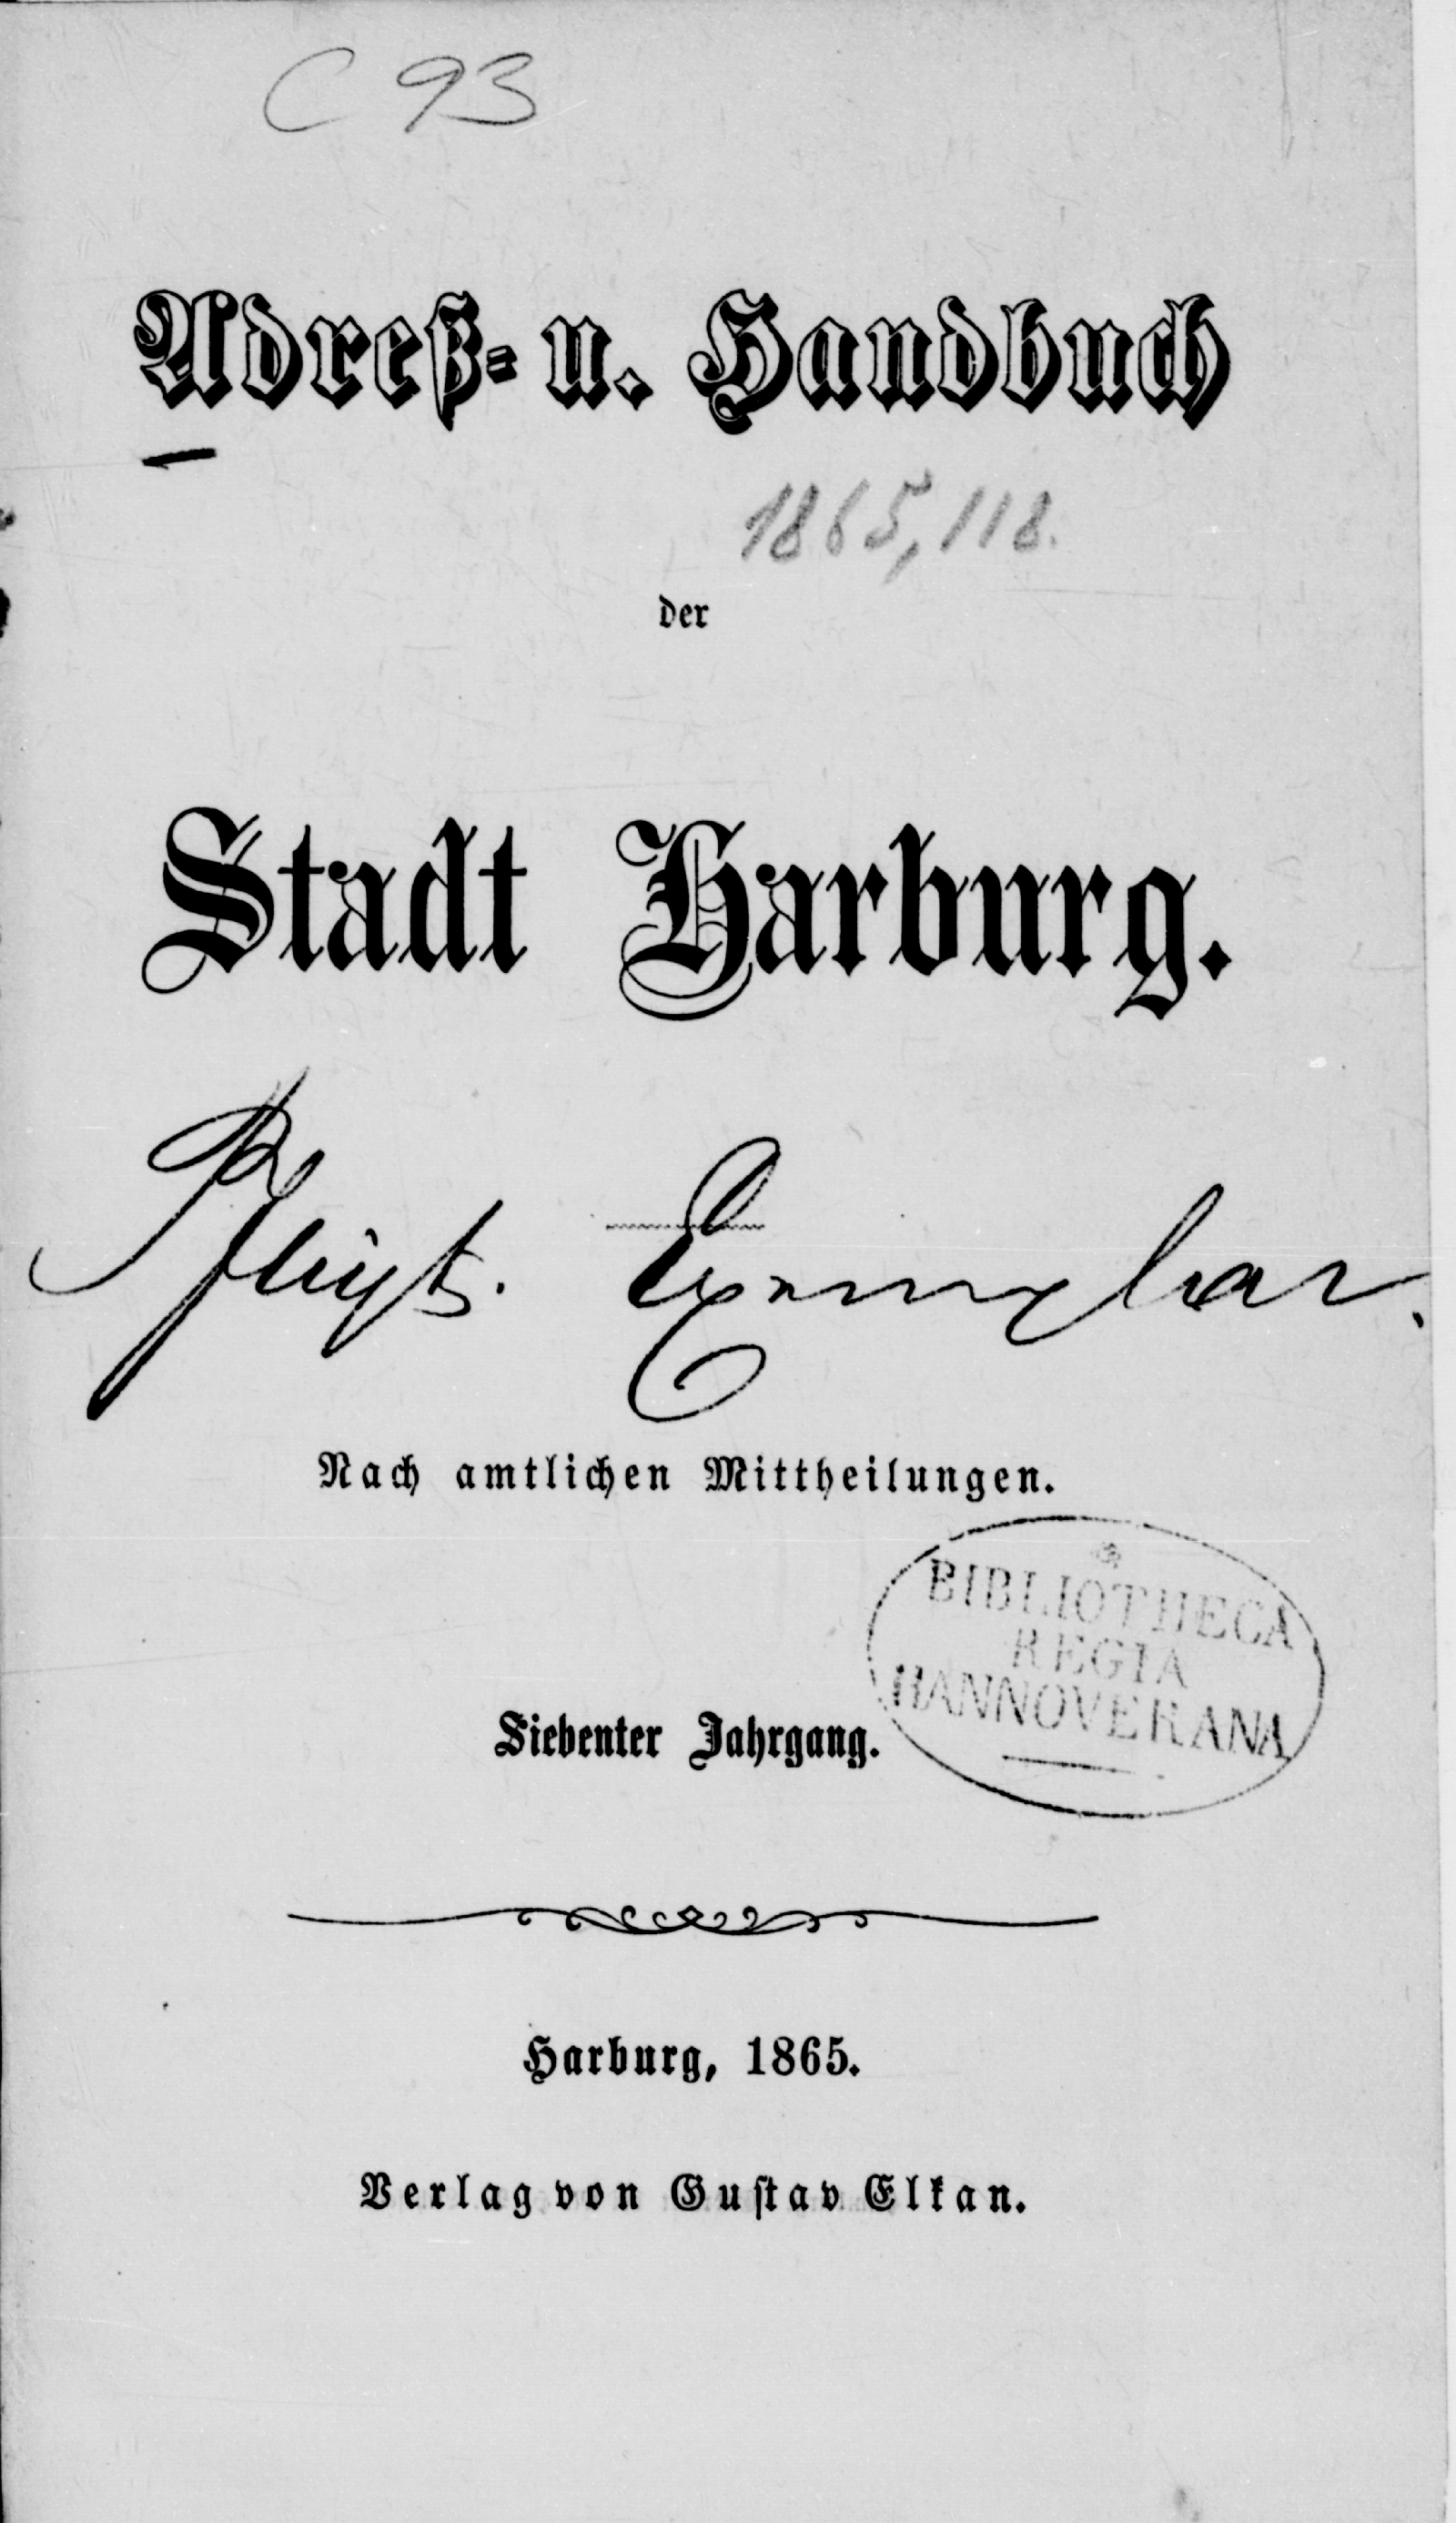 C 93
Adreß- u. Handbuch
1865, 118.
der
Stadt Harburg.
Pflicht. Exemplar.
Nach amtlichen Mittheilungen.
BIBLIOTHECA
REGIA
HANNOVERANA
Siebenter Jahrgang.
Harburg, 1865.
Verlag von Gustav Elkan.